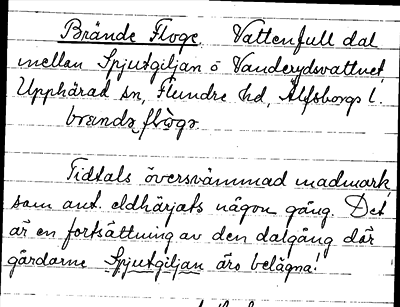 Brände Floge. Vattenfull dal
mellan Spjutgiljan o Vanderydsvattnet,
Upphärad sn, Flundre hd, Älfsborgs l.
brandə flogə.
Tidtals översvämmad madmark,
som ant. eldhärjats någon gång. Det
är en fortsättning av den dalgång där
gårdarne Spjutgiljan äro belägna!